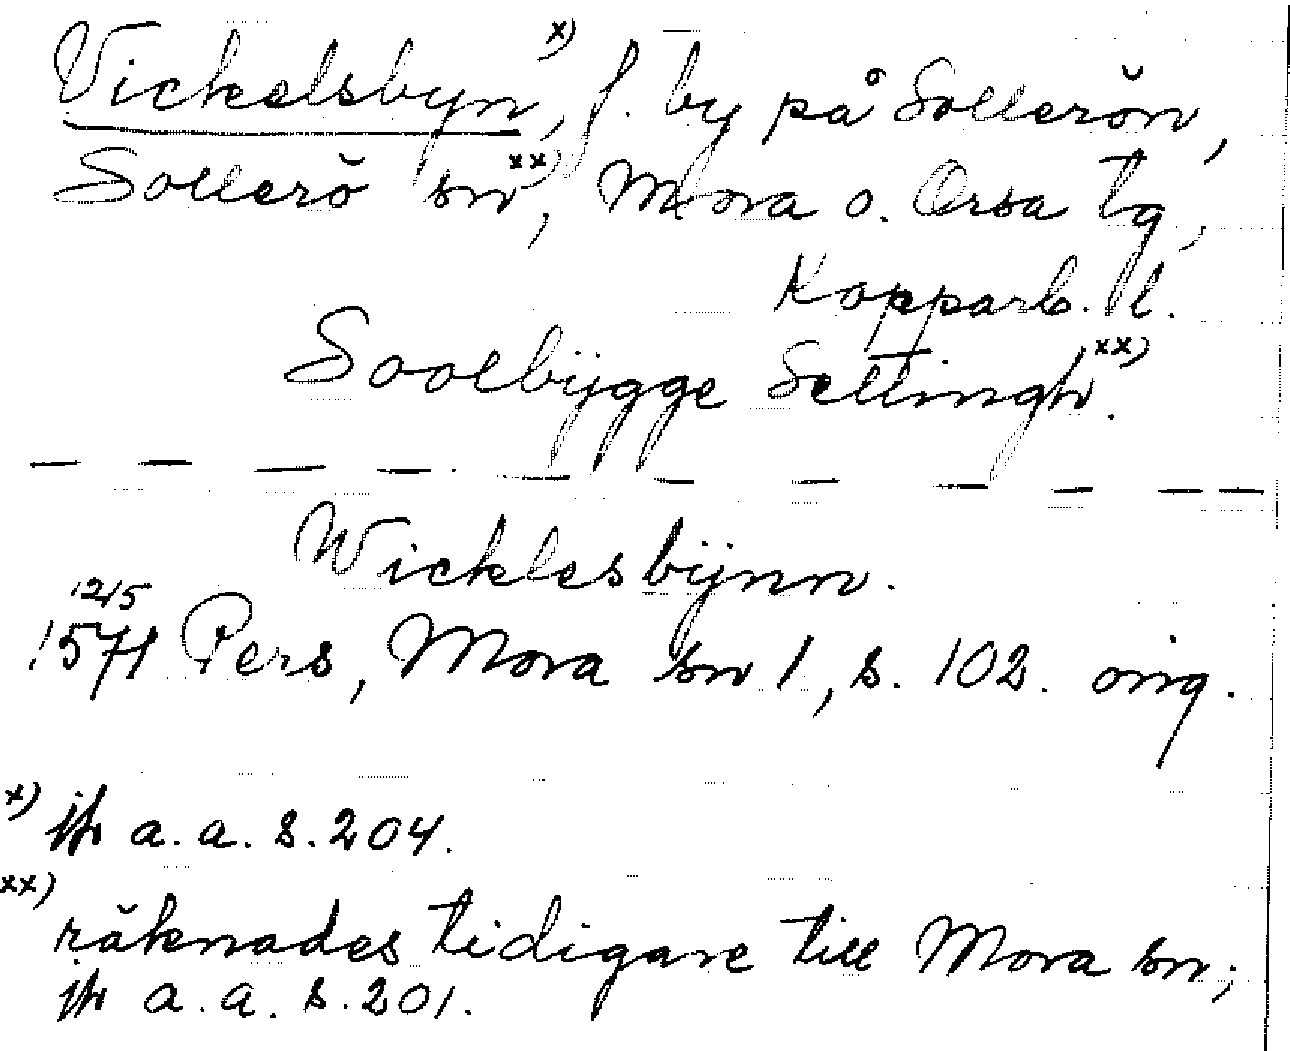 Vickelsbyn,x) f. by på Sollerön,
Sollerö sn,xx) Mora o. Orsa tg,
Kopparb. l.
Soolbÿgge Settingh.xx)
Wicklesbÿnn.
12/5
1571 Pers, Mora sn 1, s. 102. orig.
x) jfr a. a. s. 204.
xx)
räknades tidigare till Mora sn;
jfr a. a. s. 201.